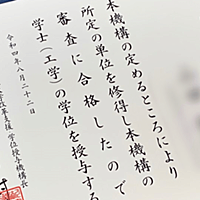 本機構の定めるところにより
所定の単位を修得し本機構の
審査に合格したので
学士（工学）の学位を授与する
令和四年八月二十二日
学位授与機構長